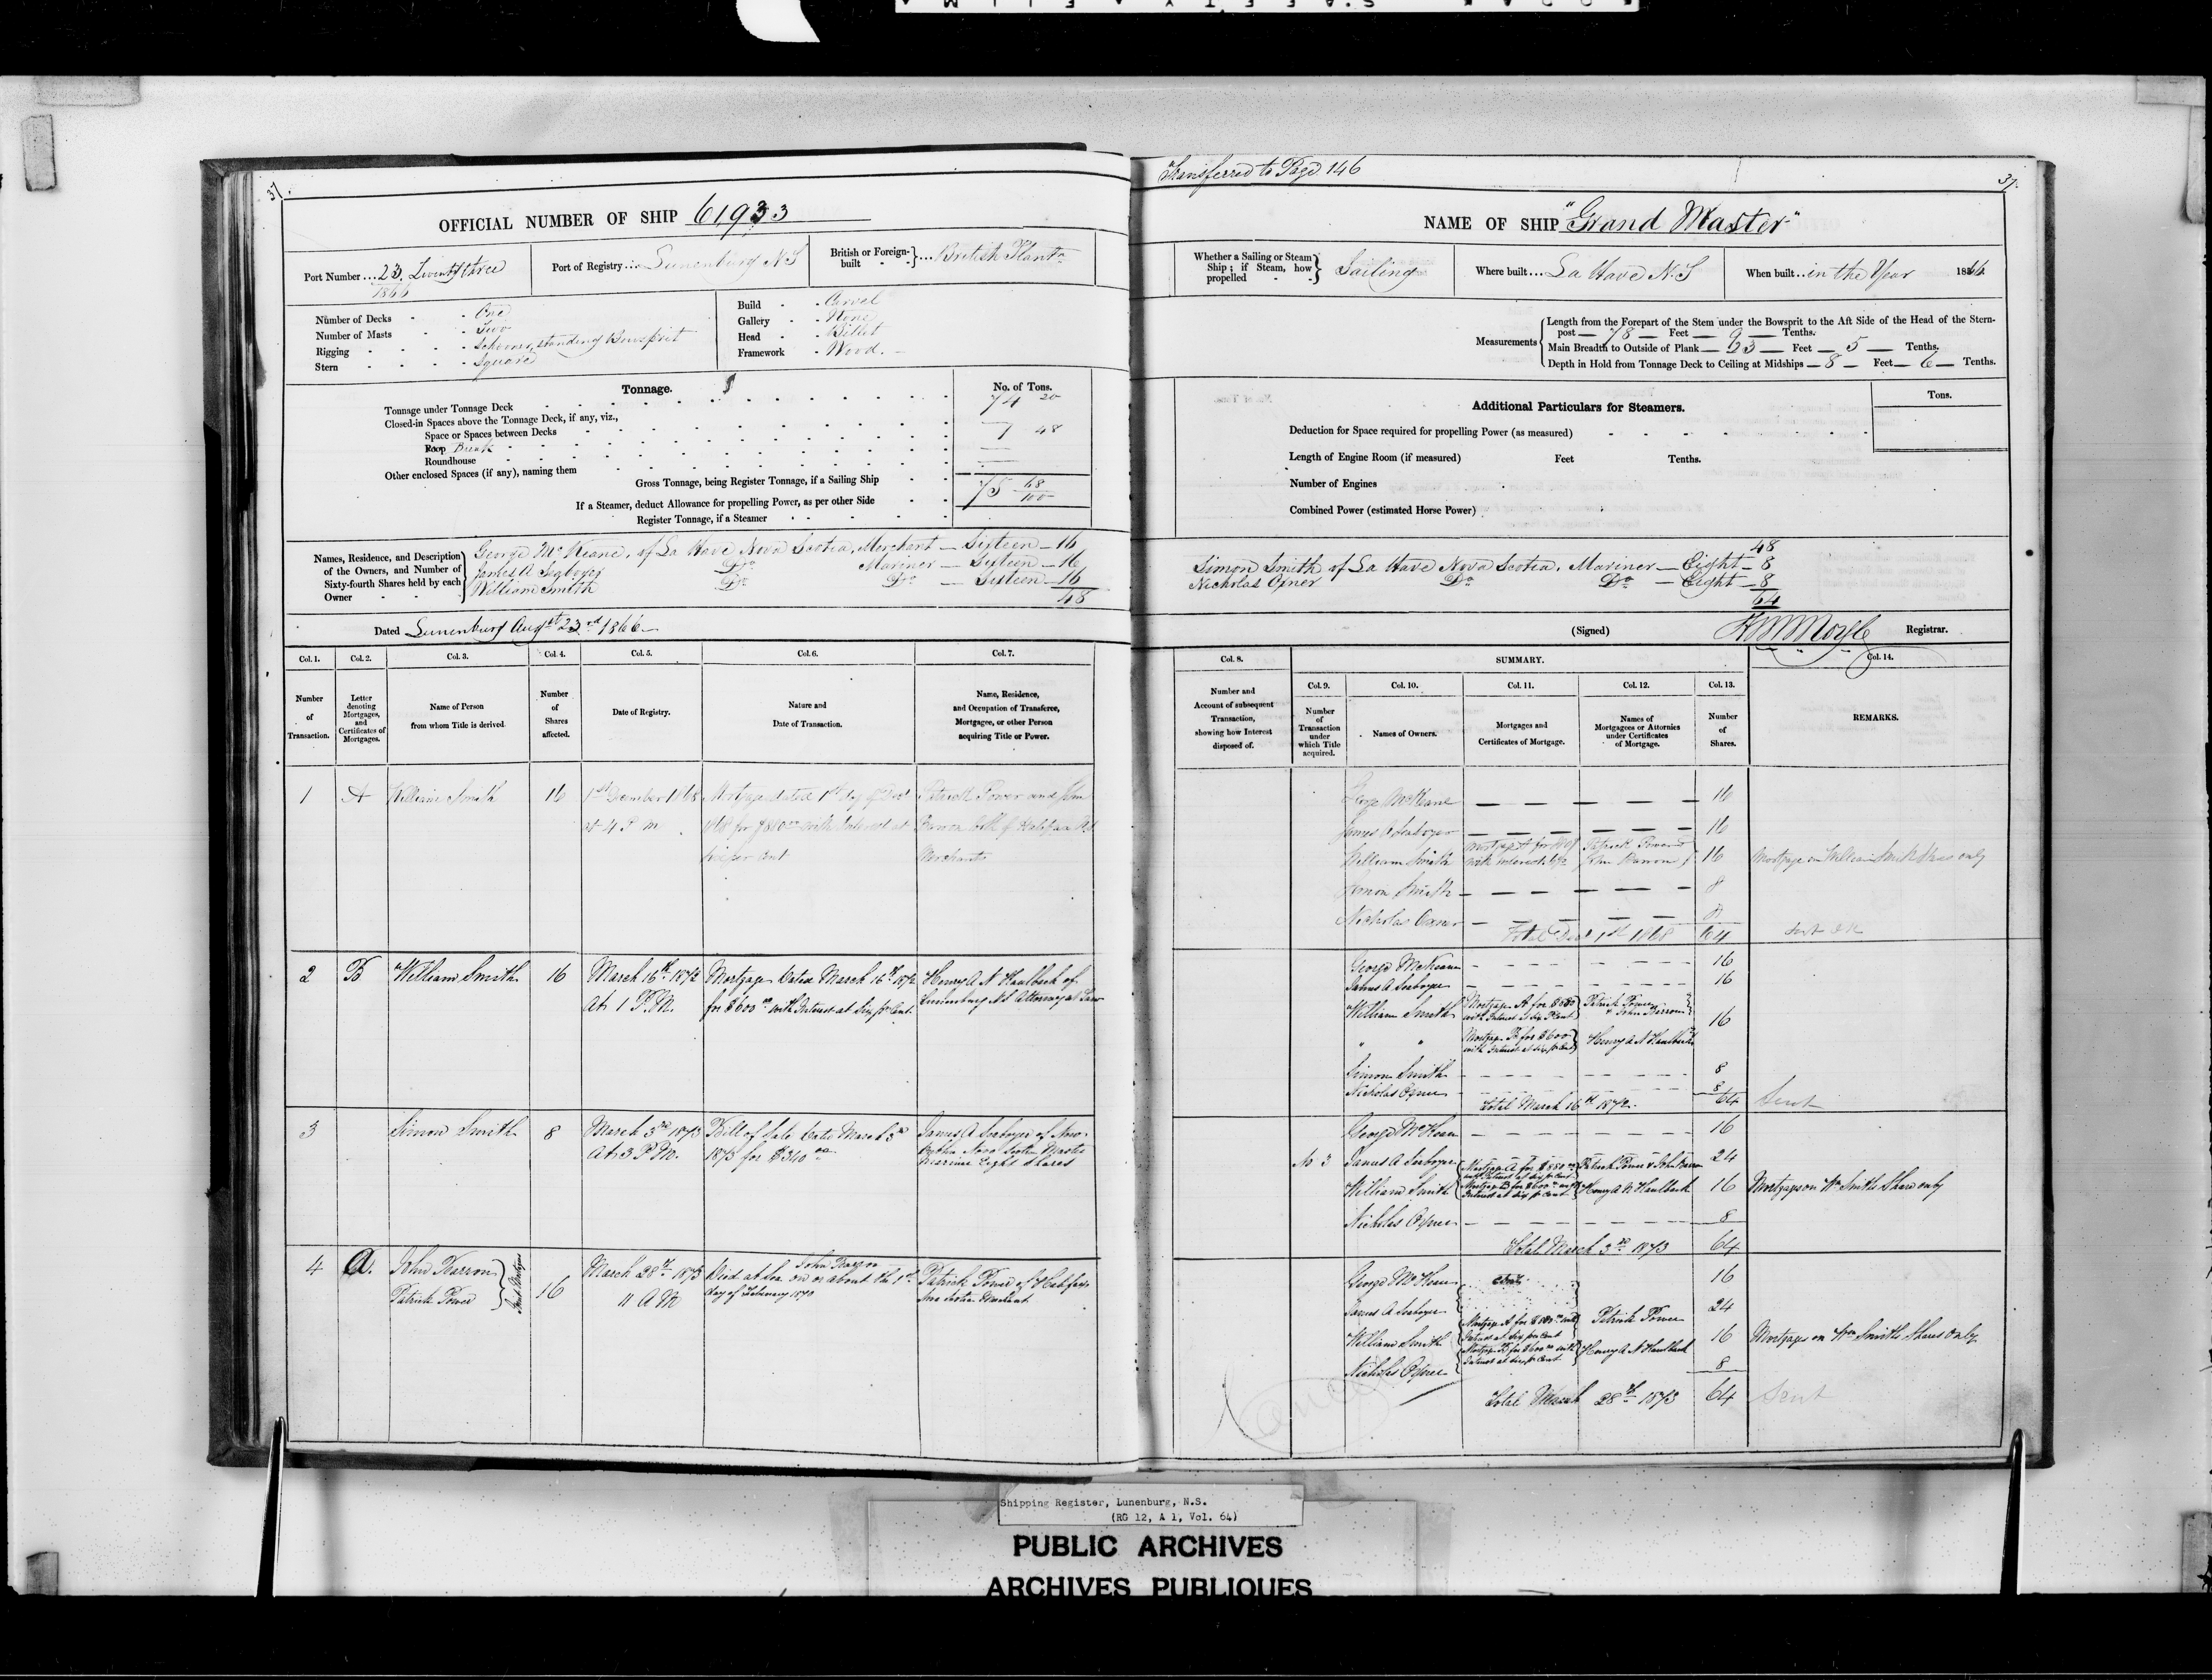 37.
OFFICIAL NUMBER OF SHIP 61933
Port Number ... 23. Twenty three
1866
Port of Registry ... Lunenburg N S
British or Foreign-built ... British Plantn
Number of Decks - One
Number of Masts - Two
Rigging - Schooner, standing Bowsprit
Stern - Square
Build - Carvel
Gallery - None
Head - Billet
Framework - Wood.
Tonnage.
No. of Tons.
Tonnage under Tonnage Deck 74 20
Closed-in Spaces above the Tonnage Deck, if any, viz.,
Space or Spaces between Decks
1 48
Poop Break
Roundhouse
Other enclosed Spaces (if any), naming them
Gross Tonnage, being Register Tonnage, if a Sailing Ship 75 68/100
If a Steamer, deduct Allowance for propelling Power, as per other Side
Register Tonnage, if a Steamer
Names, Residence, and Description of the Owners, and Number of Sixty-fourth Shares held by each Owner
George McKeane, of La Have Nova Scotia, Merchant — Sixteen — 16
James A Seaboyer Do Mariner — Sixteen — 16
William Smith Do Do — Sixteen — 16
48
Dated Lunenburg Augst 23rd 1866
Col. 1. Col. 2. Col. 3. Col. 4. Col. 5. Col. 6. Col. 7.
Number of Transaction.
Letter denoting Mortgages, and Certificates of Mortgages.
Name of Person from whom Title is derived.
Number of Shares affected.
Date of Registry.
Nature and Date of Transaction.
Name, Residence, and Occupation of Transferee, Mortgagee, or other Person acquiring Title or Power.
1 A William Smith 16 1st December 1868 Mortgage dated 1st day of Decr Patrick Power and John
at 4 P M 1868 for $880 00 with Interest at Barron both of Halifax N S
six per cent Merchants
2 B William Smith 16 March 16th 1872 Mortgage Dated March 16th 1872 Henry A N Kaulback of
At 1 P.M. for $600 00 with Interest at Six pr Cent. Lunenburg N S Attorney at Law
3 Simon Smith 8 March 3rd 1873 Bill of Sale Dated March 3rd James A Seaboyer of New
At 3 P.M. 1873 for $340 00 Nova Scotia Master
Mariner Eight Shares
4 A. John Barron
Patrick Power
Joint Mortgees
16 March 28th 1873 John Barron
11 A M Died at Sea on or about the 1st Patrick Power of Halifax
day of February 1870 Nova Scotia Merchant
Transferred to Page 146
37.
NAME OF SHIP "Grand Master"
Whether a Sailing or Steam Ship; if Steam, how propelled Sailing
Where built ... La Have N. S
When built .. in the Year 1866
Measurements
Length from the Forepart of the Stem under the Bowsprit to the Aft Side of the Head of the Stern-
post — 78 — Feet — 9 — Tenths.
Main Breadth to Outside of Plank — 23 — Feet — 5 — Tenths.
Depth in Hold from Tonnage Deck to Ceiling at Midships — 8 — Feet — 6 — Tenths.
Additional Particulars for Steamers.
Tons.
Deduction for Space required for propelling Power (as measured)
Length of Engine Room (if measured) Feet Tenths.
Number of Engines
Combined Power (estimated Horse Power)
48
Simon Smith of La Have Nova Scotia, Mariner — Eight — 8
Nicholas Oxner Do Do — Eight — 8
64
(Signed) Registrar.
Col. 8. SUMMARY. Col. 14.
Col. 9. Col. 10. Col. 11. Col. 12. Col. 13.
Number and Account of subsequent Transaction, showing how Interest disposed of.
Number of Transaction under which Title acquired.
Names of Owners.
Mortgages and Certificates of Mortgage.
Names of Mortgagees or Attornies under Certificates of Mortgage.
Number of Shares.
REMARKS.
George McKeane 16
James A Seaboyer 16
William Smith Patrick Power John Barron 16 Mortgage on William Smith Shares only
Simon Smith 8
Nicholas Oxner 8
Total Decr 1st 1868 64
George McKean 16
James A Seaboyer 16
William Smith Mortgage A for $880 with Interest at six pr Cent Patrick Power & John Barron 16
" " Mortgage B for $600 with Interest at six pr Cent Henry A N Kaulback
Simon Smith 8
Nicholas Oxner 8
Total March 16th 1872. 64 Sent
George McKean 16
No 3 James A Seaboyer 24
Mortgage A for $880 00 with Interest at six pr Cent Patrick Power & John Barron
William Smith Mortgage B for $600 00 with Interest at six pr Cent Henry A N Kaulback 16 Mortgages on Wm Smiths Share only
Nicholas Oxner 8
Total March 3rd 1873 64
George McKean 16
James A Seaboyer 24
Mortgage A for $880 00 with Interest at six per Cent Patrick Power
William Smith 16 Mortgages on Wm Smiths Shares only
Mortgage B for $600 00 with Interest at six pr Cent Henry A N Kaulback
Nicholas Oxner 8
Total March 28th 1873 64 Sent
Shipping Register, Lunenburg, N.S.
(RG 12, A 1, Vol. 64)
PUBLIC ARCHIVES
ARCHIVES PUBLIQUES